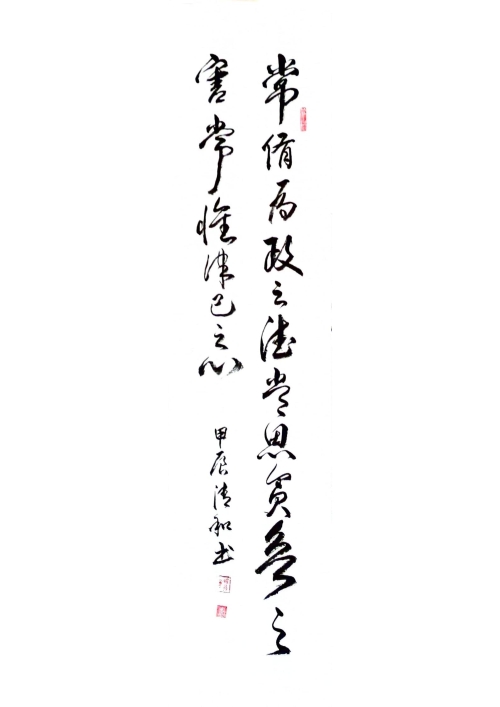 常修为政之德常思贪欲之
害常怀律己之心
甲辰清和书